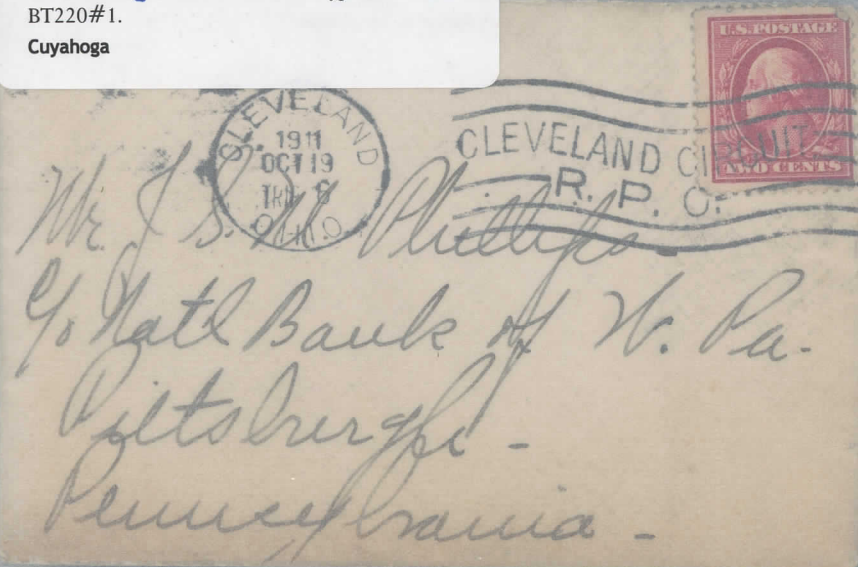 BT220#1.
Cuyahoga
U.S. POSTAGE
TWO CENTS
CLEVELAND
1911
OCT 19
TRIP 6
OHIO
CLEVELAND CIRCUIT
R. P. O.
Mr. J. S. M. Phillips
c/o Natl Bank of W. Pa.
Pittsburgh -
Pennsylvania -